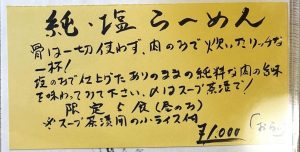 純・塩らーめん
骨は一切使わず、肉のみで炊いたリッチな
一杯!
塩のみで仕上げたありのままの純粋な肉の旨味
を味わって下さい。〆はスープ茶漬で!
限定5食(昼のみ)
※スープ茶漬用の小ライス付
¥1,000